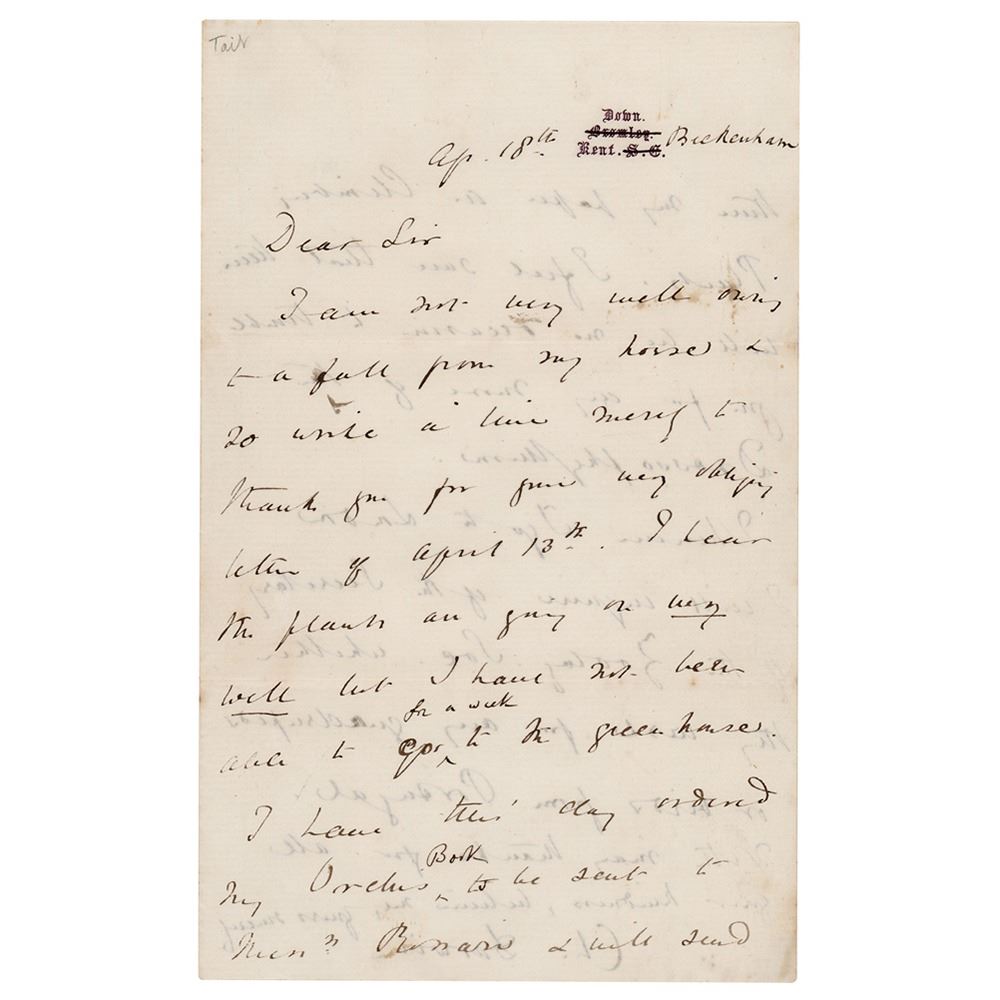 Tait
Down.
Bromley.
Kent. S.E. Beckenham
Ap. 18th
Dear Sir
I am not very well owing
to a fall from my horse &
so write a line merely to
thank you for your very obliging
letter of April 13th. I hear
the plants are going on very
well but I have not been
able to go for a week to the greenhouse.
I have this day ordered
my Orchis Book to be sent to
Messrs & will send